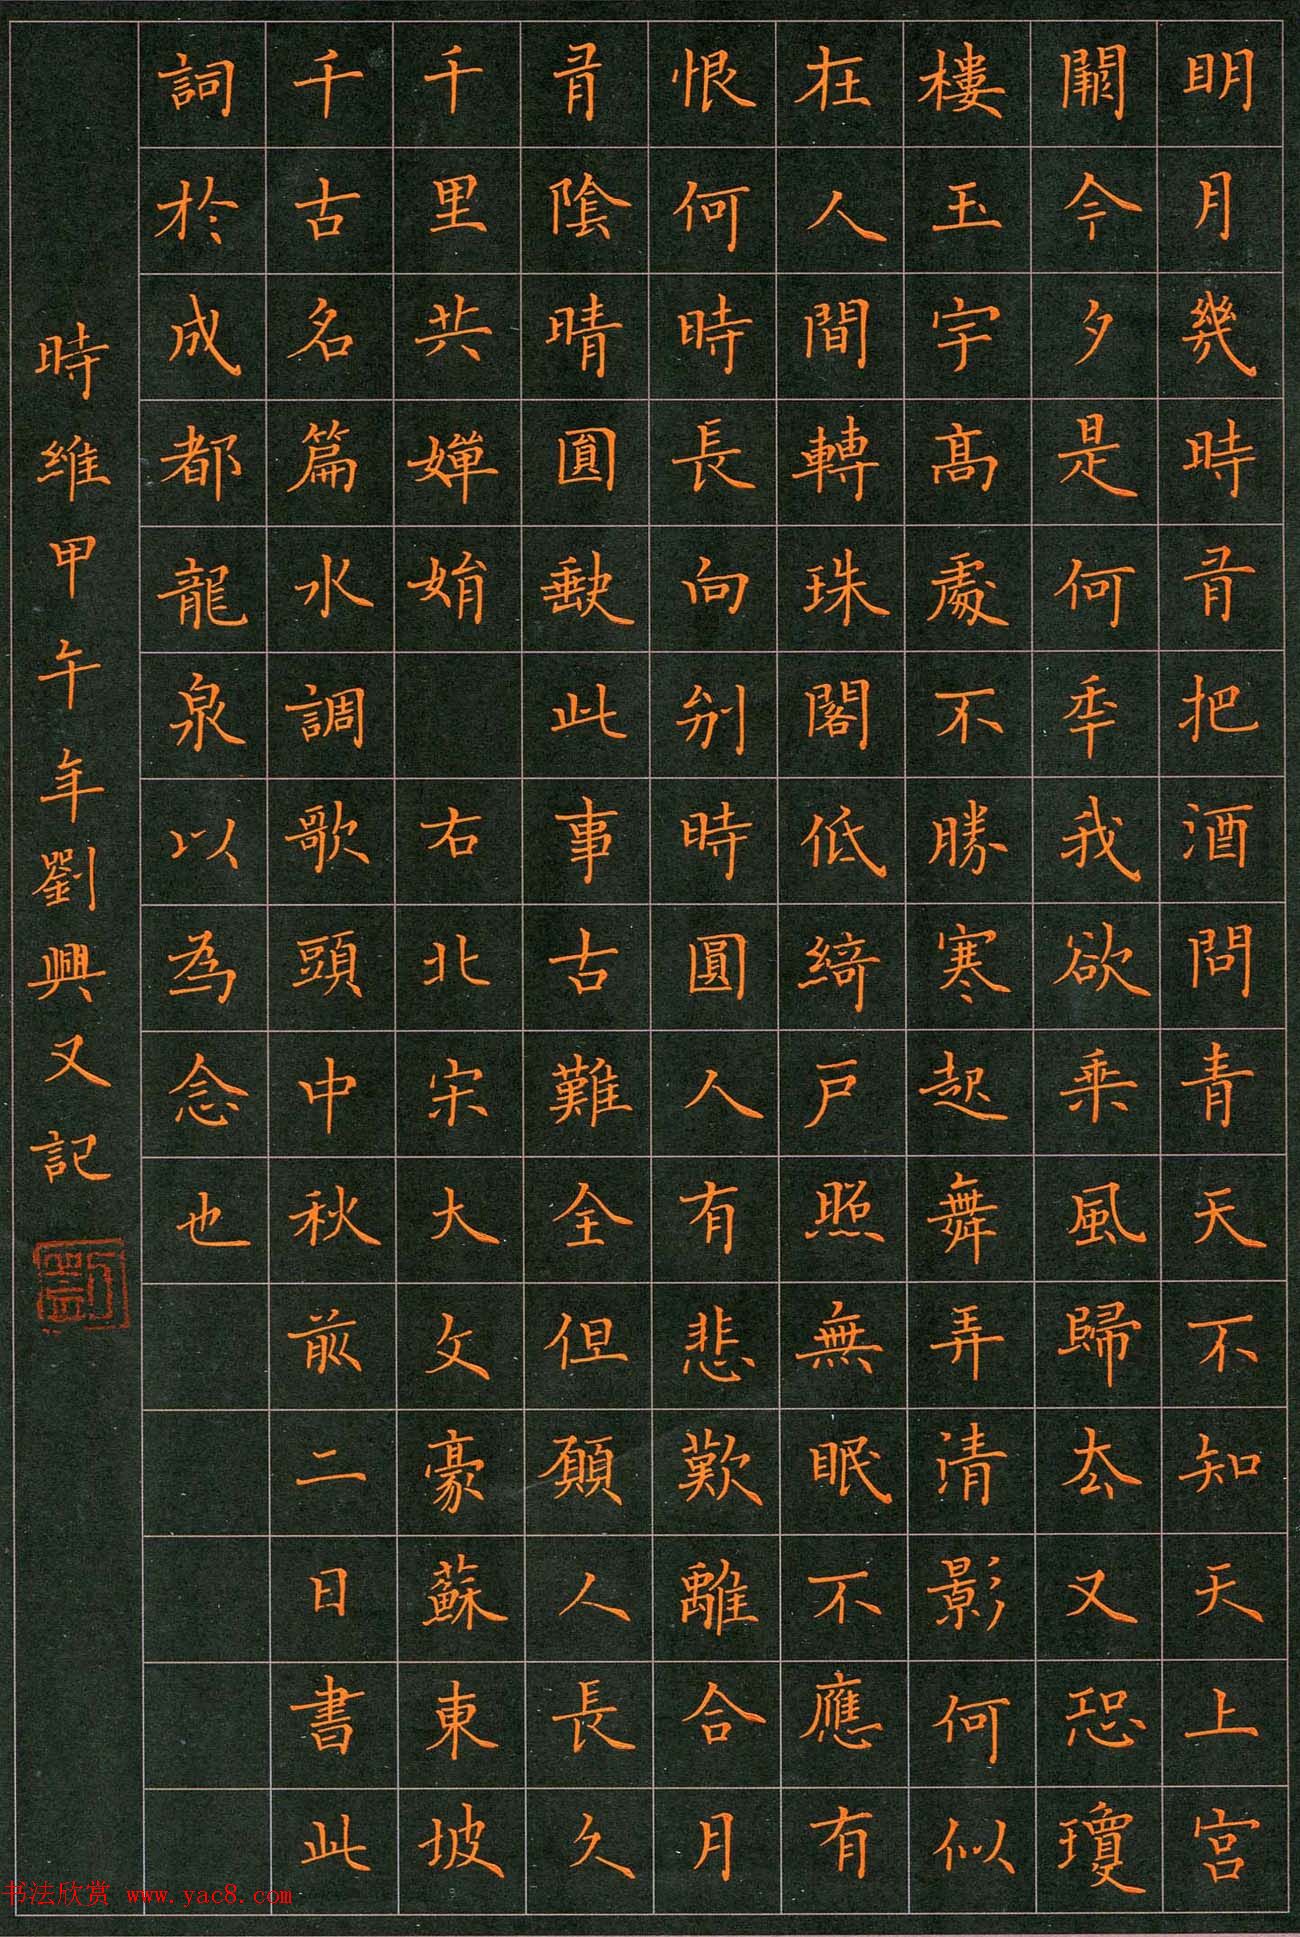 明月幾時有把酒問青天不知天上宮
闕今夕是何年我欲乘風歸去又恐瓊
樓玉宇高處不勝寒起舞弄清影何似
在人間轉珠閣低綺戶照無眠不應有
恨何時長向別時圓人有悲歡離合月
有陰晴圓缺此事古難全但願人長久
千里共嬋娟 右北宋大文豪蘇東坡
千古名篇水調歌頭中秋前二日書此
詞於成都龍泉以為念也
時維甲午年劉興又記
书法欣赏 www.yac8.com